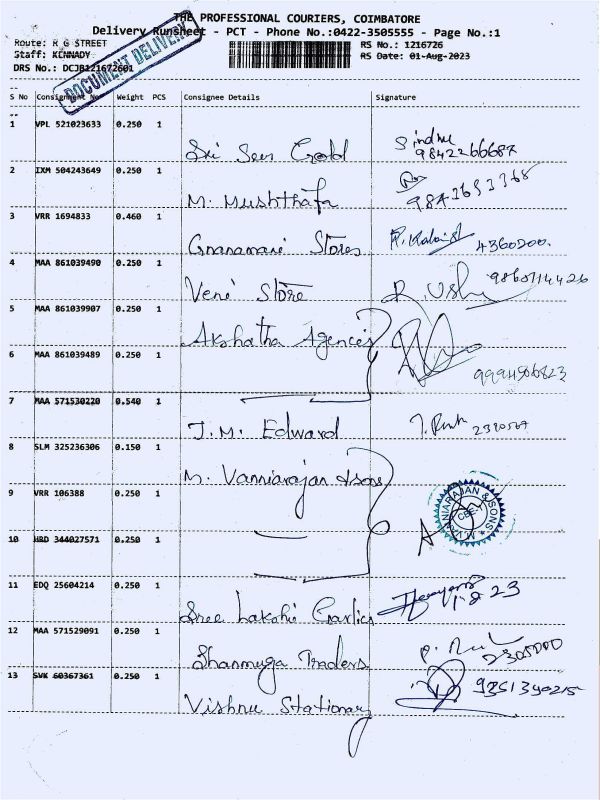 THE PROFESSIONAL COURIERS, COIMBATORE
Delivery Runsheet - PCT - Phone No.:0422-3505555 - Page No.:1
Route: R G STREET
RS No.: 1216726
Staff: KENNADY
RS Date: 01-Aug-2023
DRS No.: DCJB121672601
DOCUMENT DELIVERY
S No Consignment No Weight PCS Consignee Details Signature
1 VPL 521023633 0.250 1
Sri Sun Gold Sindhu
9842266687
2 IXM 504243649 0.250 1
M. Mushthafa
3 VRR 1694833 0.460 1
Gnanamani Stores 4360200.
4 MAA 861039490 0.250 1
Veni Store R. Usha 9860714426
5 MAA 861039907 0.250 1
Akshatha Agencies
6 MAA 861039489 0.250 1
7 MAA 571530220 0.540 1
J.M. Edward
8 SLM 325236306 0.150 1
M. Vanniarajan & sons
9 VRR 106388 0.250 1
M.VANNIARAJAN & SONS
CBE-1
10 HRD 344027571 0.250 1
11 EDQ 25604214 0.250 1
Sree Lakshi Garlics 1.8.23
12 MAA 571529091 0.250 1
Shanmuga Traders 2305000
13 SVK 60367361 0.250 1
Vishnu Stationary 9361340215